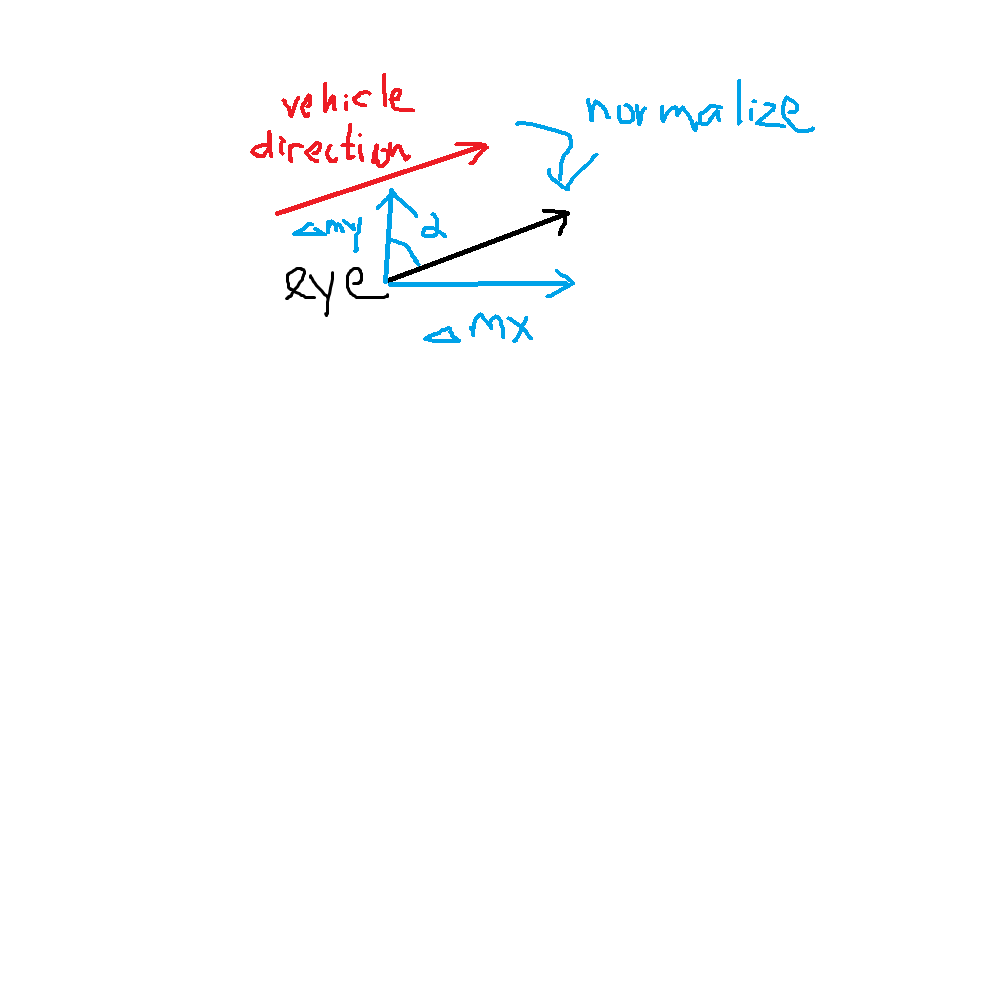 vehicle
direction
normalize
△my
α
eye
△mx